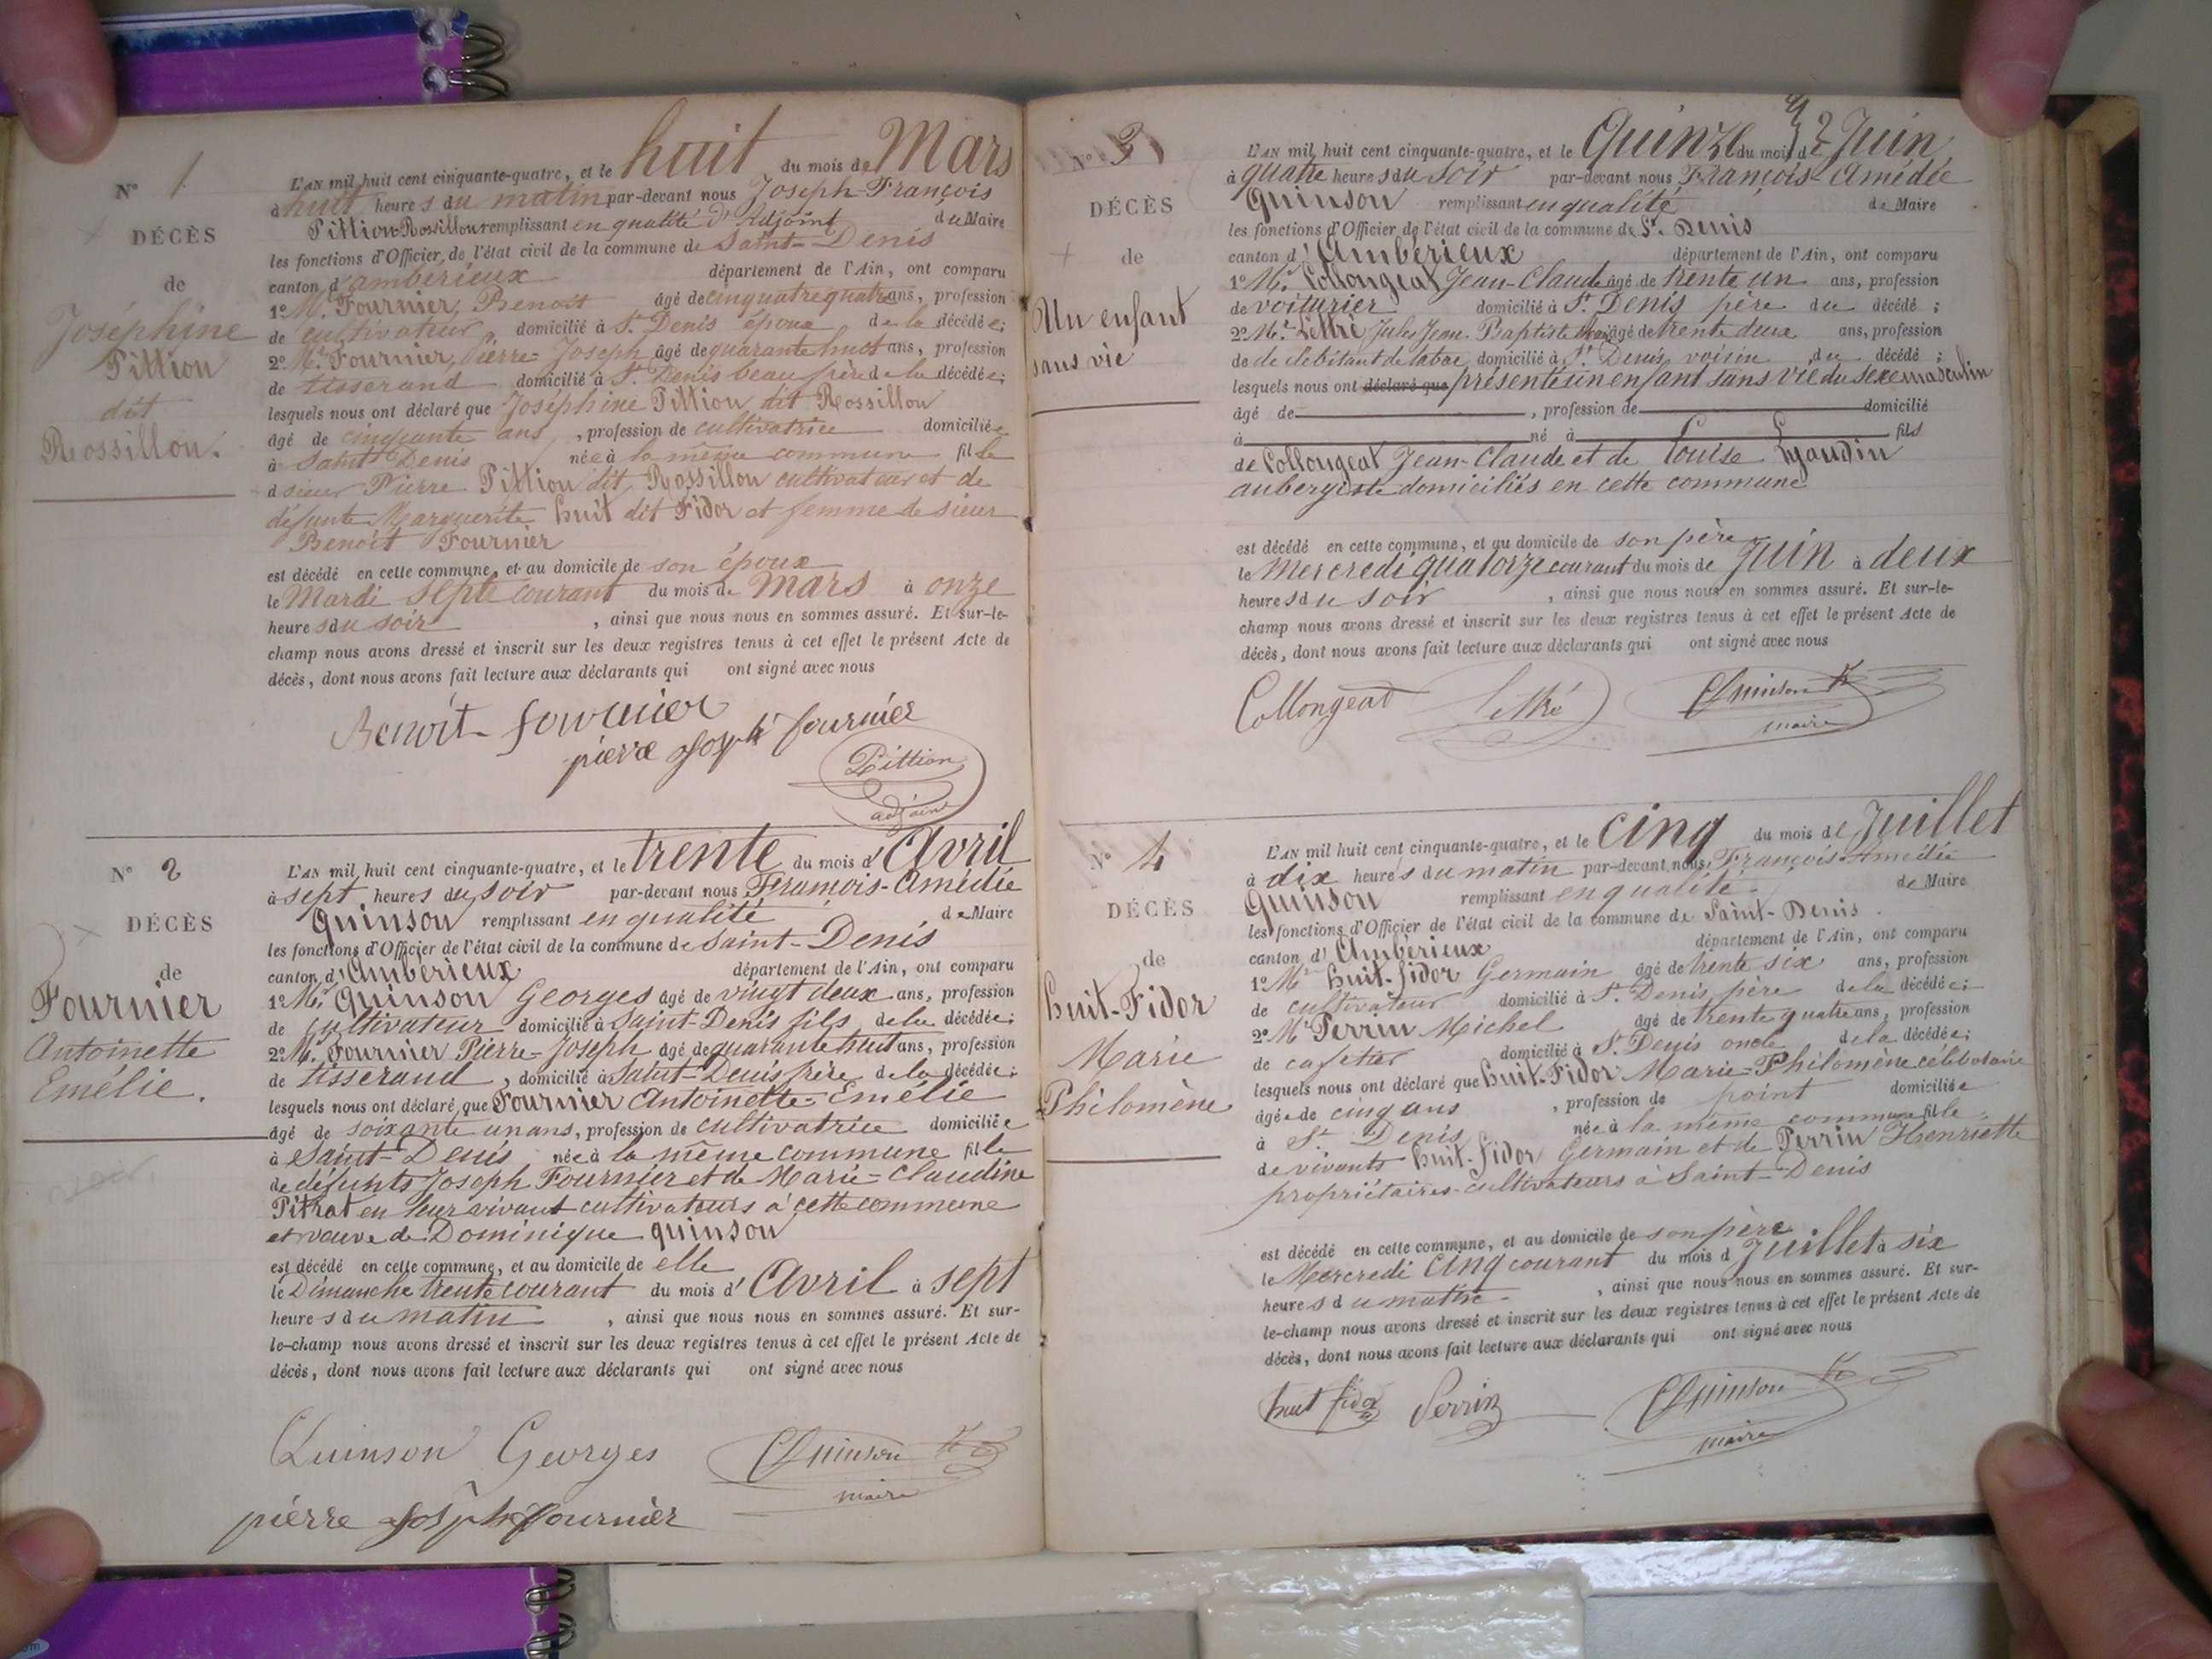 N° 1
DÉCÈS
de
Joséphine
Pittion
dit
Rossillon.
L'AN mil huit cent cinquante-quatre, et le huit du mois de Mars
à huit heures du matin par-devant nous Joseph-François
Pittion-Rossillon remplissant en qualité d'Adjoint du Maire
les fonctions d'Officier de l'état civil de la commune de Saint-Denis
canton d'ambérieux département de l'Ain, ont comparu
1° Mr. Fournier, Benoit âgé de cinquatre quatre ans, profession
de cultivateur, domicilié à St. Denis époux de la décédée;
2° Mr. Fournier, Pierre-Joseph âgé de quarante huit ans, profession
de tisserand domicilié à St. Denis beau frère de la décédée;
lesquels nous ont déclaré que Joséphine Pittion dit Rossillon
âgé de cinquante ans, profession de cultivatrice domiciliée
à Saint Denis née à la même commune fille
d sieur Pierre Pittion dit Rossillon cultivateur et de
défunte Marguerite huit dit Fidor et femme de sieur
Benoit Fournier
est décédé en cette commune, et au domicile de son époux
le Mardi Sept courant du mois de Mars à onze
heures du soir, ainsi que nous nous en sommes assuré. Et sur-le-
champ nous avons dressé et inscrit sur les deux registres tenus à cet effet le présent Acte de
décès, dont nous avons fait lecture aux déclarants qui ont signé avec nous
Benoit fournier
pierre joseph fournier
Pittion
adjoint
N° 2
DÉCÈS
de
Fournier
Antoinette
Emélie.
L'AN mil huit cent cinquante-quatre, et le trente du mois d'Avril
à sept heures du soir par-devant nous François-Amédée
Quinson remplissant en qualité de Maire
les fonctions d'Officier de l'état civil de la commune de Saint-Denis
canton d'Ambérieux département de l'Ain, ont comparu
1° Mr. Quinson Georges âgé de vingt deux ans, profession
de cultivateur domicilié à Saint-Denis fils de la décédée;
2° Mr. Fournier Pierre-Joseph âgé de quarante huit ans, profession
de tisserand, domicilié à Saint-Denis frère de la décédée;
lesquels nous ont déclaré que Fournier Antoinette-Emélie
âgé de soixante un ans, profession de cultivatrice domiciliée
à Saint-Denis née à la même commune fille
de défunts Joseph Fournier et de Marie-Claudine
Pitrat en leur vivant cultivateurs à cette commune
et veuve de Dominique quinson
est décédé en cette commune, et au domicile de elle
le Dimanche trente courant du mois d'Avril à sept
heures du matin, ainsi que nous nous en sommes assuré. Et sur-
le-champ nous avons dressé et inscrit sur les deux registres tenus à cet effet le présent Acte de
décès, dont nous avons fait lecture aux déclarants qui ont signé avec nous
Quinson Georges
Quinson
maire
pierre joseph fournier
N° 3
DÉCÈS
de
Un enfant
sans vie
L'AN mil huit cent cinquante-quatre, et le Quinze du mois de Juin
à quatre heures du soir par-devant nous François-Amédée
Quinson remplissant en qualité de Maire
les fonctions d'Officier de l'état civil de la commune de St. Denis
canton d'Ambérieux département de l'Ain, ont comparu
1° Mr. Collongeat Jean-Claude âgé de trente un ans, profession
de voiturier domicilié à St. Denis père du décédé;
2° Mr. Lettré Jules Jean-Baptiste âgé de trente deux ans, profession
de de débitant de tabac domicilié à St Denis voisin du décédé;
lesquels nous ont déclaré que présenté un enfant sans vie du sexe masculin
âgé de, profession de domicilié
à né à fils
de Collongeat Jean-Claude et de Louise
aubergiste domiciliés en cette commune
est décédé en cette commune, et au domicile de son père
le Mercredi quatorze courant du mois de Juin à deux
heures du soir, ainsi que nous nous en sommes assuré. Et sur-le-
champ nous avons dressé et inscrit sur les deux registres tenus à cet effet le présent Acte de
décès, dont nous avons fait lecture aux déclarants qui ont signé avec nous
Collongeat Lettré Quinson
maire
N° 4
DÉCÈS
de
huit-Fidor
Marie
Philomène
L'AN mil huit cent cinquante-quatre, et le cinq du mois de Juillet
à dix heures du matin par-devant nous François-Amédée
Quinson remplissant en qualité de Maire
les fonctions d'Officier de l'état civil de la commune de Saint-Denis
canton d'Ambérieux département de l'Ain, ont comparu
1° Mr huit-fidor Germain âgé de trente six ans, profession
de cultivateur domicilié à St. Denis père de la décédée;
2° Mr Perrin Michel âgé de trente quatre ans, profession
de cafetier domicilié à St. Denis oncle de la décédée;
lesquels nous ont déclaré que huit-Fidor Marie-Philomène célibataire
âgée de cinq ans, profession de point domiciliée
à St Denis née à la même commune fille
de vivants huit-fidor Germain et de Perrin Henriette
propriétaires-cultivateurs à Saint-Denis
est décédé en cette commune, et au domicile de son père
le Mercredi cinq courant du mois d Juillet à six
heures du matin, ainsi que nous nous en sommes assuré. Et sur-
le-champ nous avons dressé et inscrit sur les deux registres tenus à cet effet le présent Acte de
décès, dont nous avons fait lecture aux déclarants qui ont signé avec nous
huit fidor Perrin Quinson
maire